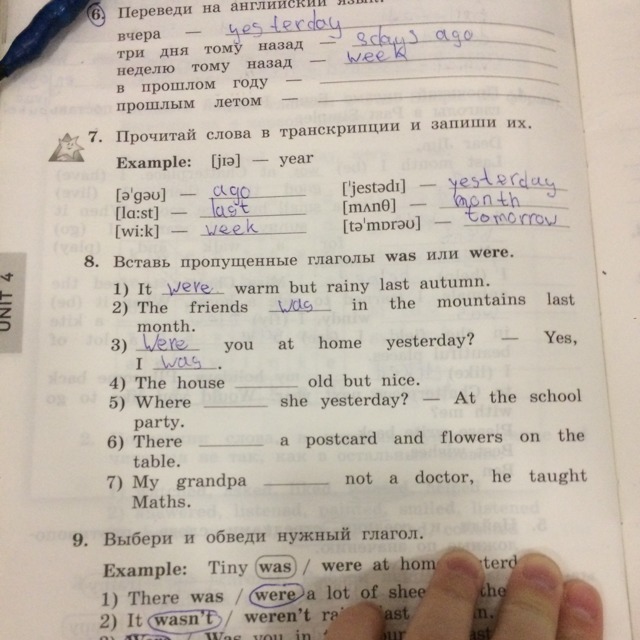 6. Переведи на английский язык.
вчера — yesterday
три дня тому назад — 3days ago
неделю тому назад — week
в прошлом году —
прошлым летом —
7. Прочитай слова в транскрипции и запиши их.
Example: [jɪə] — year
[ə'gəʊ] — ago ['jestədɪ] — yesterday
[lɑ:st] — last [mʌnθ] — month
[wi:k] — week [tə'mɒrəʊ] — tomorrow
8. Вставь пропущенные глаголы was или were.
1) It were warm but rainy last autumn.
2) The friends was in the mountains last
month.
3) Were you at home yesterday? — Yes,
I was.
4) The house ______ old but nice.
5) Where ______ she yesterday? — At the school
party.
6) There ______ a postcard and flowers on the
table.
7) My grandpa ______ not a doctor, he taught
Maths.
UNIT 4
9. Выбери и обведи нужный глагол.
Example: Tiny was / were at hom
1) There was / were a lot of shee the
2) It wasn't / weren't
3) Were / Was you in